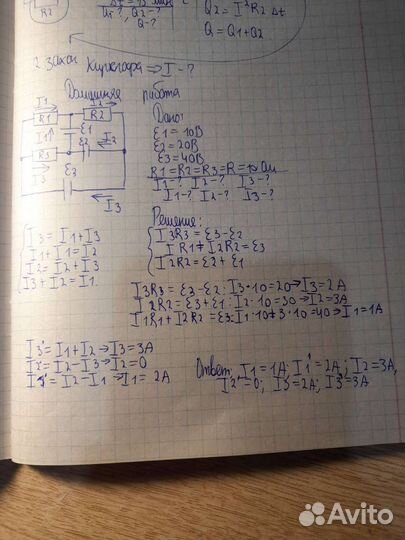 R2
Q1-?, Q2-?
Q-?
Q2 = I²R2 Δt
Q = Q1+Q2
2 закон Кирхгофа ⇒ I-?
Домашняя работа
I1
I2
R1
R2
I1
ε1
ε2
I2
R3
I3
ε3
I3
Дано:
ε1 = 10В
ε2 = 20В
ε3 = 40В
R1 = R2 = R3 = R = 10 Ом
I1-? I2-? I3-?
I1-? I2-? I3-?
Решение:
I3 = I1+I3
I1+I1 = I2
I2 = I2+I3
I3+I2 = I1
I3R3 = ε3-ε2
I1R1+I2R2 = ε3
I2R2 = ε2+ε1
I3R3 = ε3-ε2: I3·10=20→I3=2A
I2R2 = ε3+ε1: I2·10=30→I2=3A
I1R1+I2R2=ε3: I1·10+3·10=40→I1=1A
I3' = I1+I2→I3=3A
I2' = I2-I3→I2=0
I1' = I2-I1→I1=2A
Ответ: I1=1A; I1'=2A; I2=3A,
I2'=0; I3=2A; I3'=3A
Avito